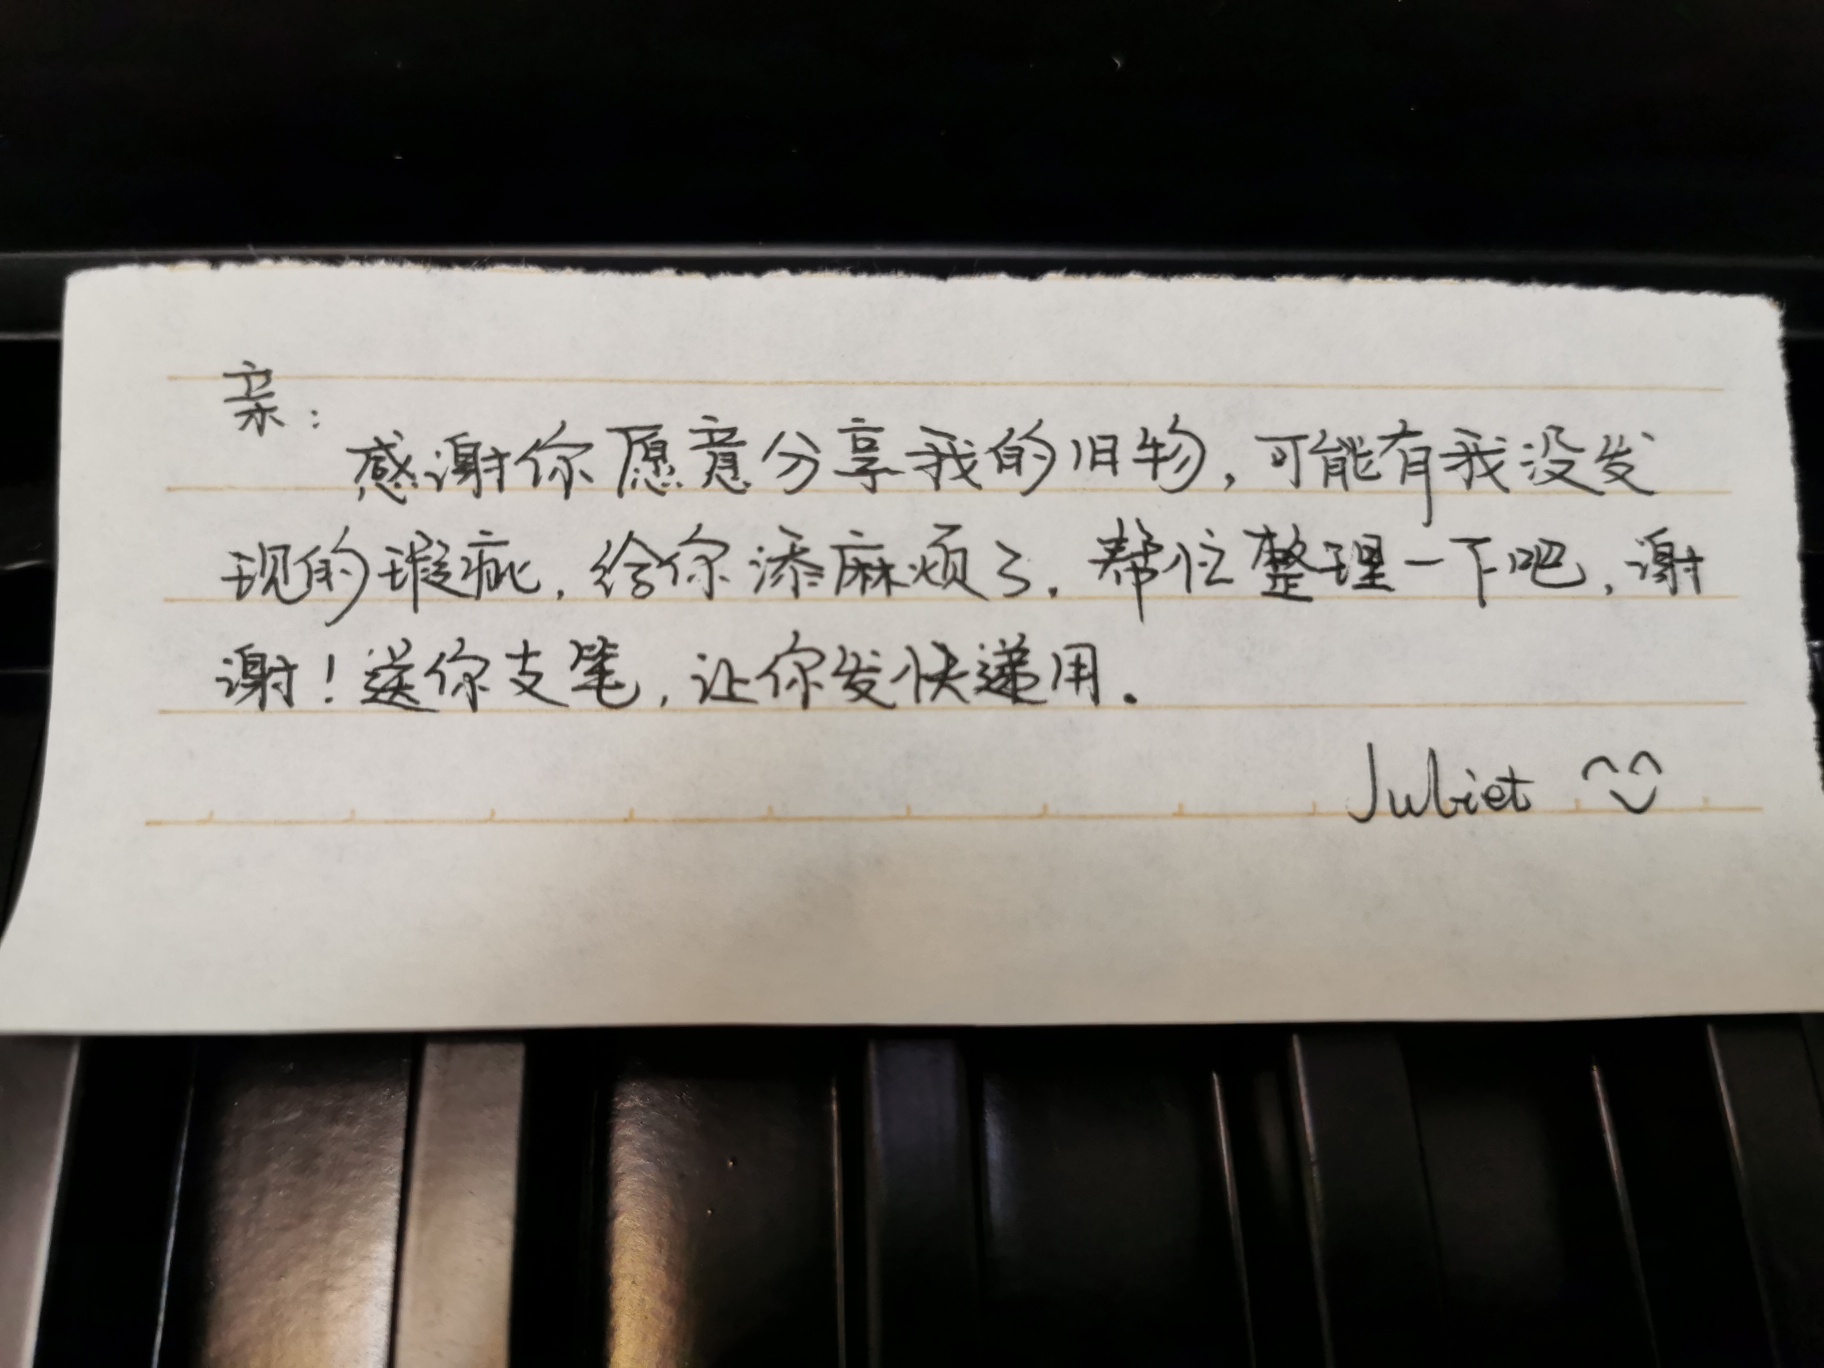 亲：
感谢你愿意分享我的旧物，可能有我没发
现的瑕疵，给你添麻烦了。帮忙整理一下吧，谢
谢！送你支笔，让你发快递用。
Juliet